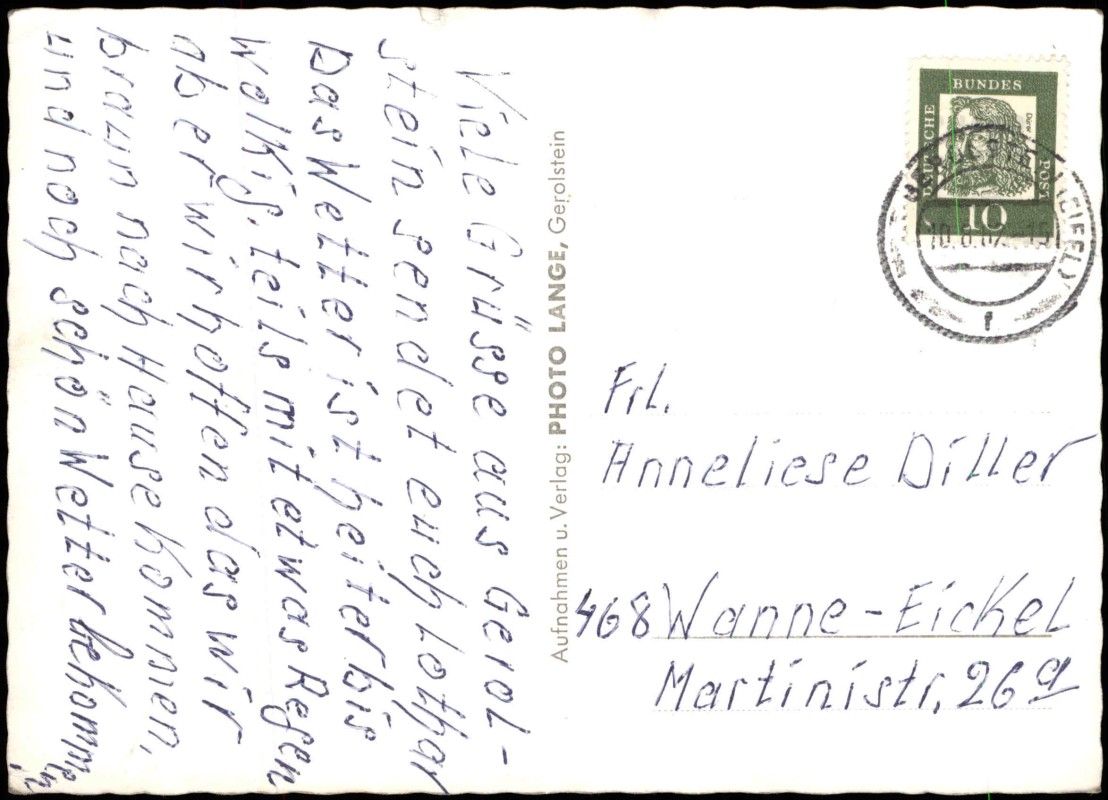 Viele Grüsse aus Gerol-
stein sendet euch Lothar
Das Wetter ist heiter bis
Wolkig, teils mit etwas Regen
aber wir hoffen das wir
braun nach Hause kommen,
und noch schön Wetter bekommen
Aufnahmen u. Verlag: PHOTO LANGE, Gerolstein
DEUTSCHE
BUNDES
POST
Dürer
10
(EIFEL)
f
Frl.
Anneliese Diller
468 Wanne-Eickel
Martinistr. 26a